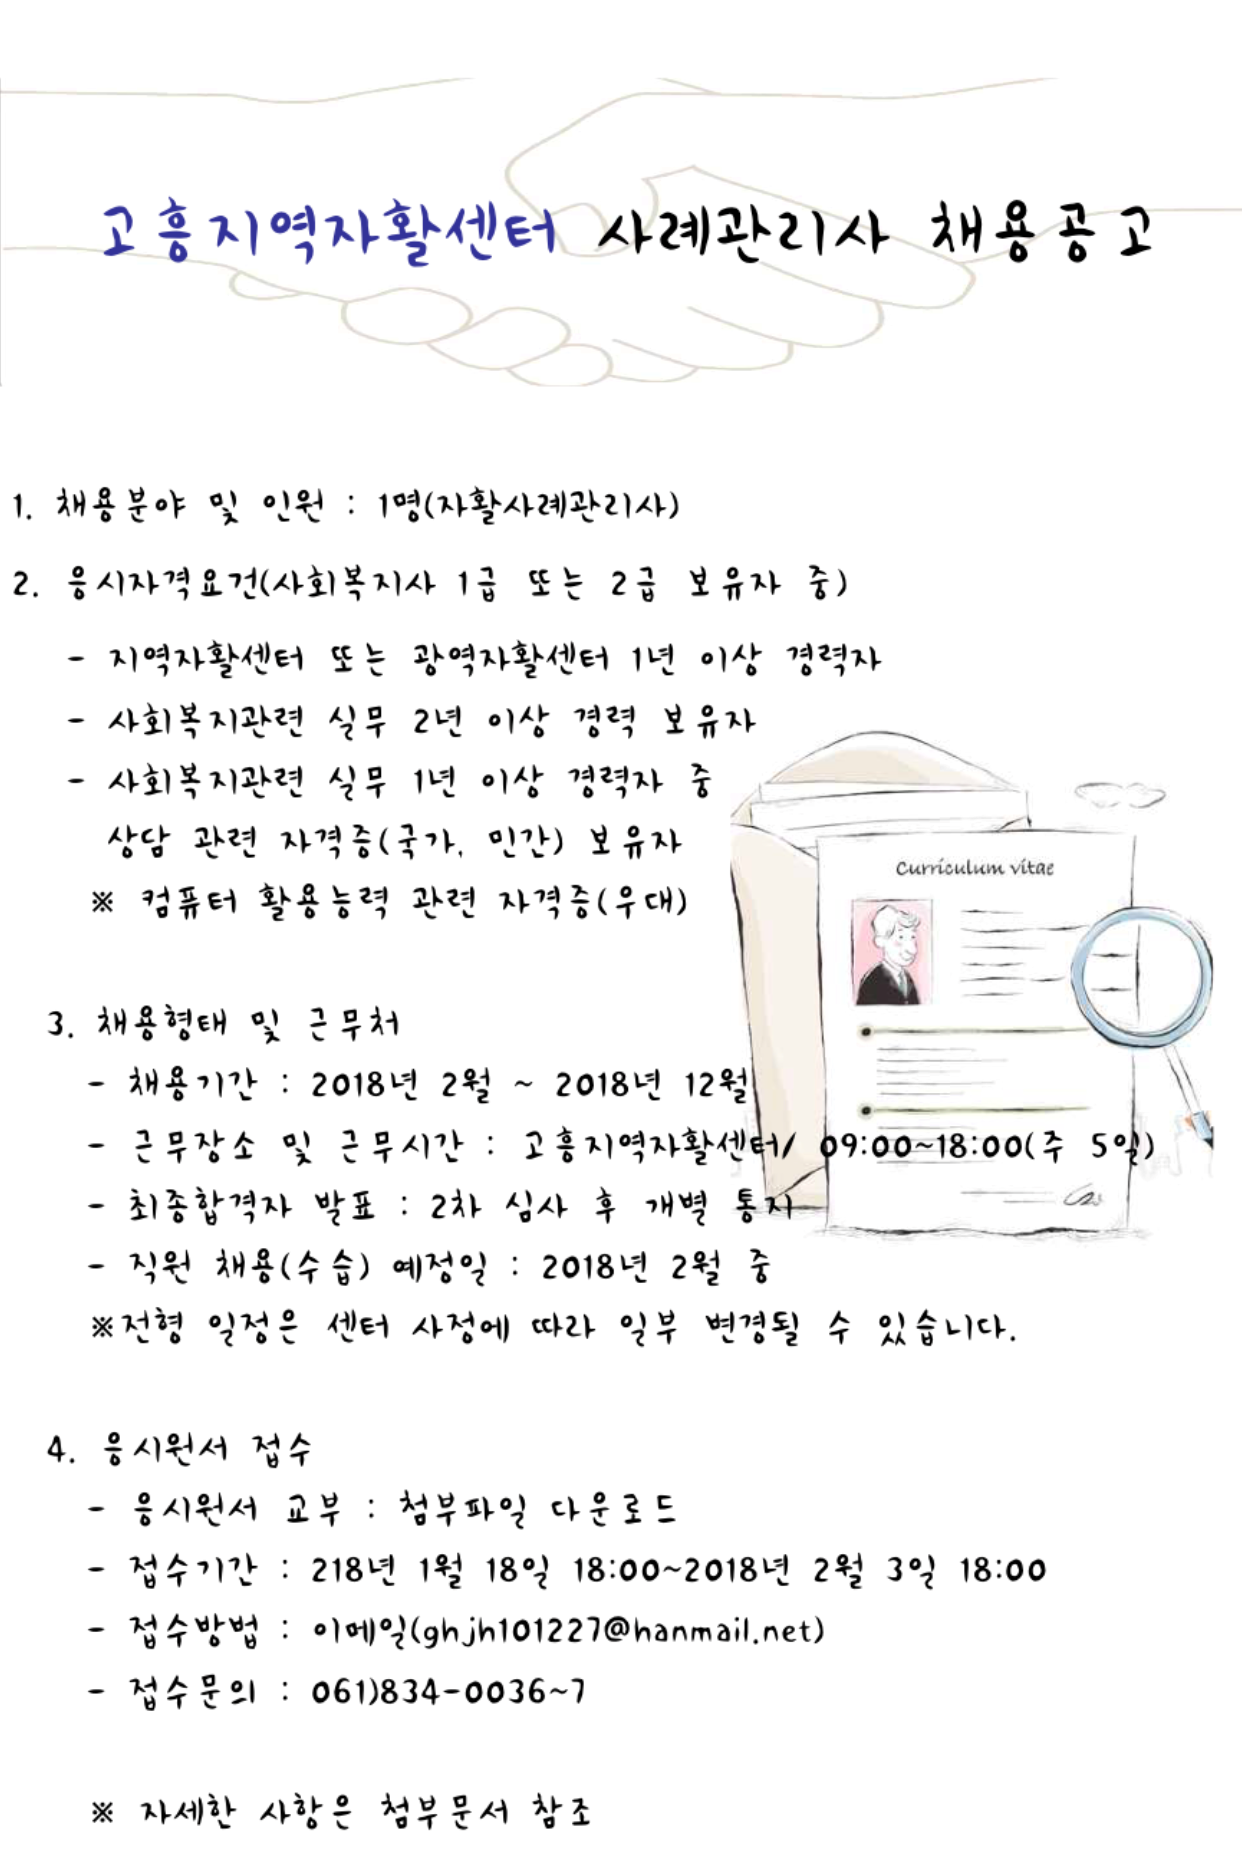 고흥지역자활센터 사례관리사 채용공고
1. 채용분야 및 인원 : 1명(자활사례관리사)
2. 응시자격요건(사회복지사 1급 또는 2급 보유자 중)
- 지역자활센터 또는 광역자활센터 1년 이상 경력자
- 사회복지관련 실무 2년 이상 경력 보유자
- 사회복지관련 실무 1년 이상 경력자 중
상담 관련 자격증(국가, 민간) 보유자
※ 컴퓨터 활용능력 관련 자격증(우대)
Curriculum vitae
3. 채용형태 및 근무처
- 채용기간 : 2018년 2월 ~ 2018년 12월
- 근무장소 및 근무시간 : 고흥지역자활센터/ 09:00~18:00(주 5일)
- 최종합격자 발표 : 2차 심사 후 개별 통지
- 직원 채용(수습) 예정일 : 2018년 2월 중
※전형 일정은 센터 사정에 따라 일부 변경될 수 있습니다.
4. 응시원서 접수
- 응시원서 교부 : 첨부파일 다운로드
- 접수기간 : 218년 1월 18일 18:00~2018년 2월 3일 18:00
- 접수방법 : 이메일(ghjh101227@hanmail.net)
- 접수문의 : 061)834-0036~7
※ 자세한 사항은 첨부문서 참조